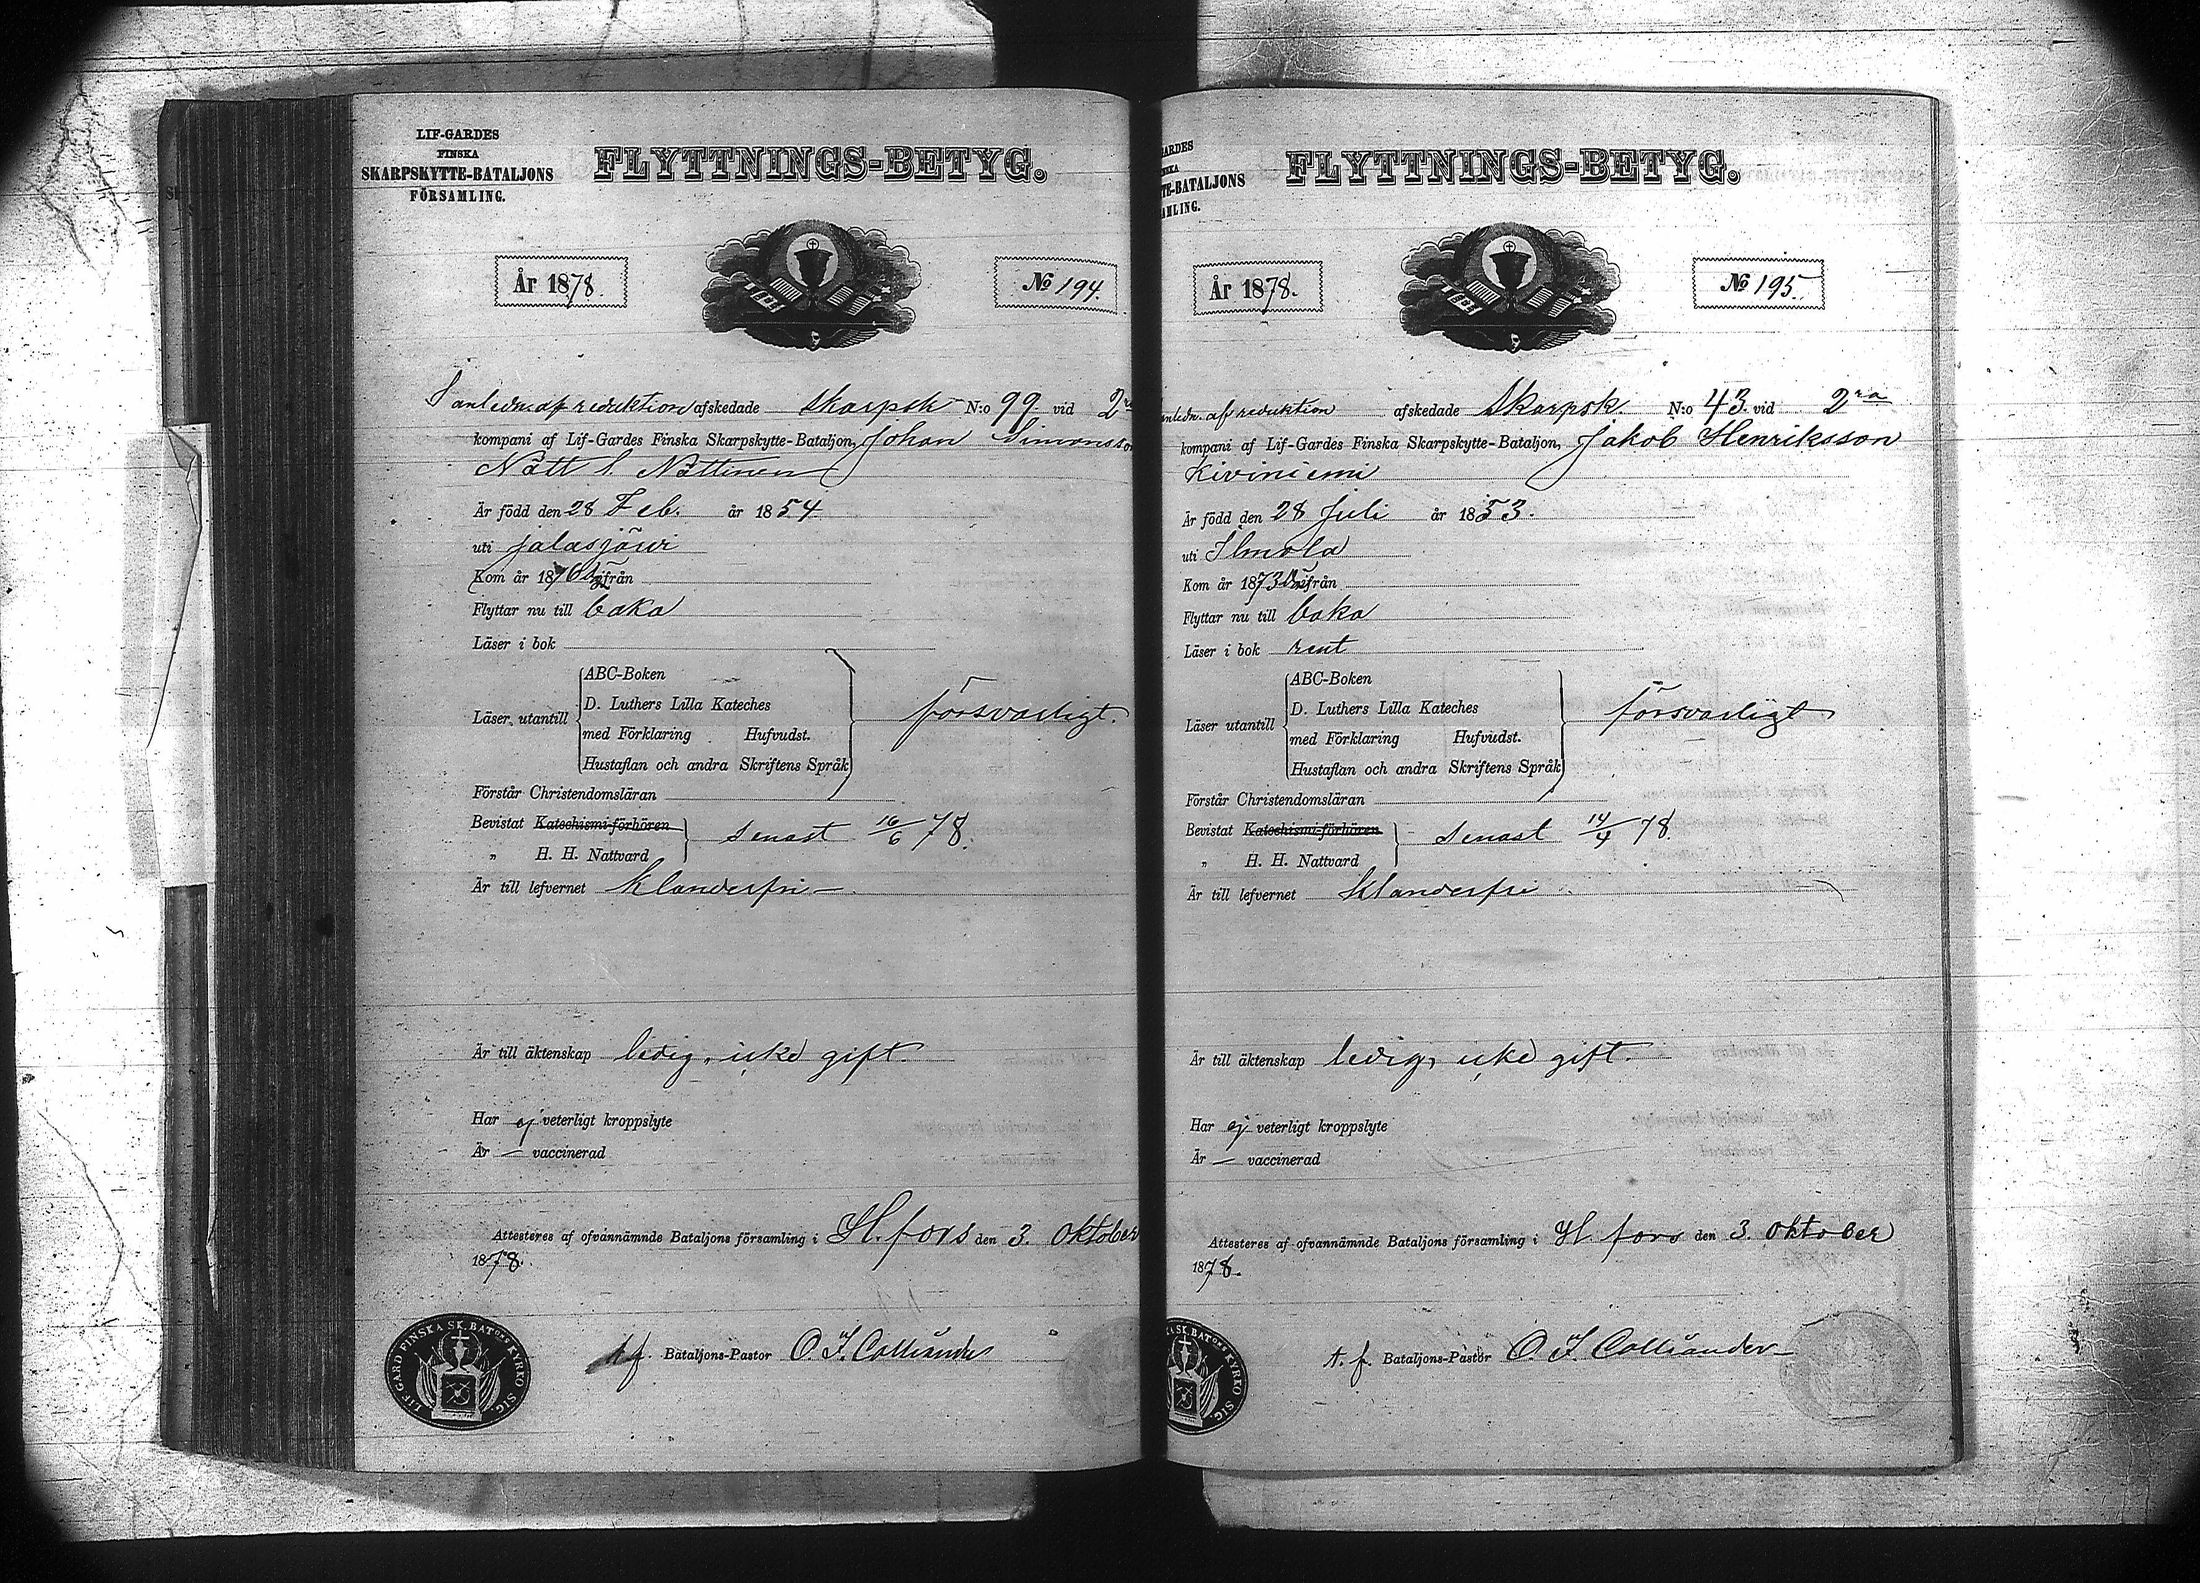 LIF-GARDES
FINSKA
SKARPSKYTTE-BATALJONS
FÖRSAMLING.
FLYTTNINGS-BETYG.
År 1878.
No 194.
I anledn. af reduktion afskedade Skarpsk N:o 99 vid 2ra
kompani af Lif-Gardes Finska Skarpskytte-Bataljon, Johan Simonsson
Nätt l. Nättinen
Är född den 28 Feb. år 1854
uti Jalasjärvi
Kom år 187 ifrån
Flyttar nu till baka
Läser i bok
Läser utantill
ABC-Boken
D. Luthers Lilla Kateches
med Förklaring Hufvudst.
Hustaflan och andra Skriftens Språk
försvarligt.
Förstår Christendomsläran
Bevistat Katechismi-förhören
„ H. H. Nattvard
senast 16/6 78.
Är till lefvernet klanderfri
Är till äktenskap ledig, icke gift.
Har ej veterligt kroppslyte
Är — vaccinerad
Attesteres af ofvannämnde Bataljons församling i H.fors den 3. Oktober
1878.
A.f. Bataljons-Pastor O. I. Colliander
LIF-GARD FINSKA SK. BATONS KYRKO SIG.
GARDES
NSKA
TTE-BATALJONS
AMLING.
FLYTTNINGS-BETYG.
År 1878.
No 195.
anledn. af reduktion afskedade Skarpsk. N:o 43. vid 2ra
kompani af Lif-Gardes Finska Skarpskytte-Bataljon, Jakob Henriksson
Kiviniemi
Är född den 28 Juli år 1853.
uti Ilmola
Kom år 1873 ifrån
Flyttar nu till baka
Läser i bok rent
Läser utantill
ABC-Boken
D. Luthers Lilla Kateches
med Förklaring Hufvudst.
Hustaflan och andra Skriftens Språk
försvarligt
Förstår Christendomsläran
Bevistat Katechismi-förhören
„ H. H. Nattvard
senast 14/4 78.
Är till lefvernet klanderfri
Är till äktenskap ledig, icke gift.
Har ej veterligt kroppslyte
Är — vaccinerad
Attesteres af ofvannämnde Bataljons församling i H.fors den 3. Oktober
1878.
A. f. Bataljons-Pastor O. I. Colliander
A SK. BATONS KYRKO SIG.